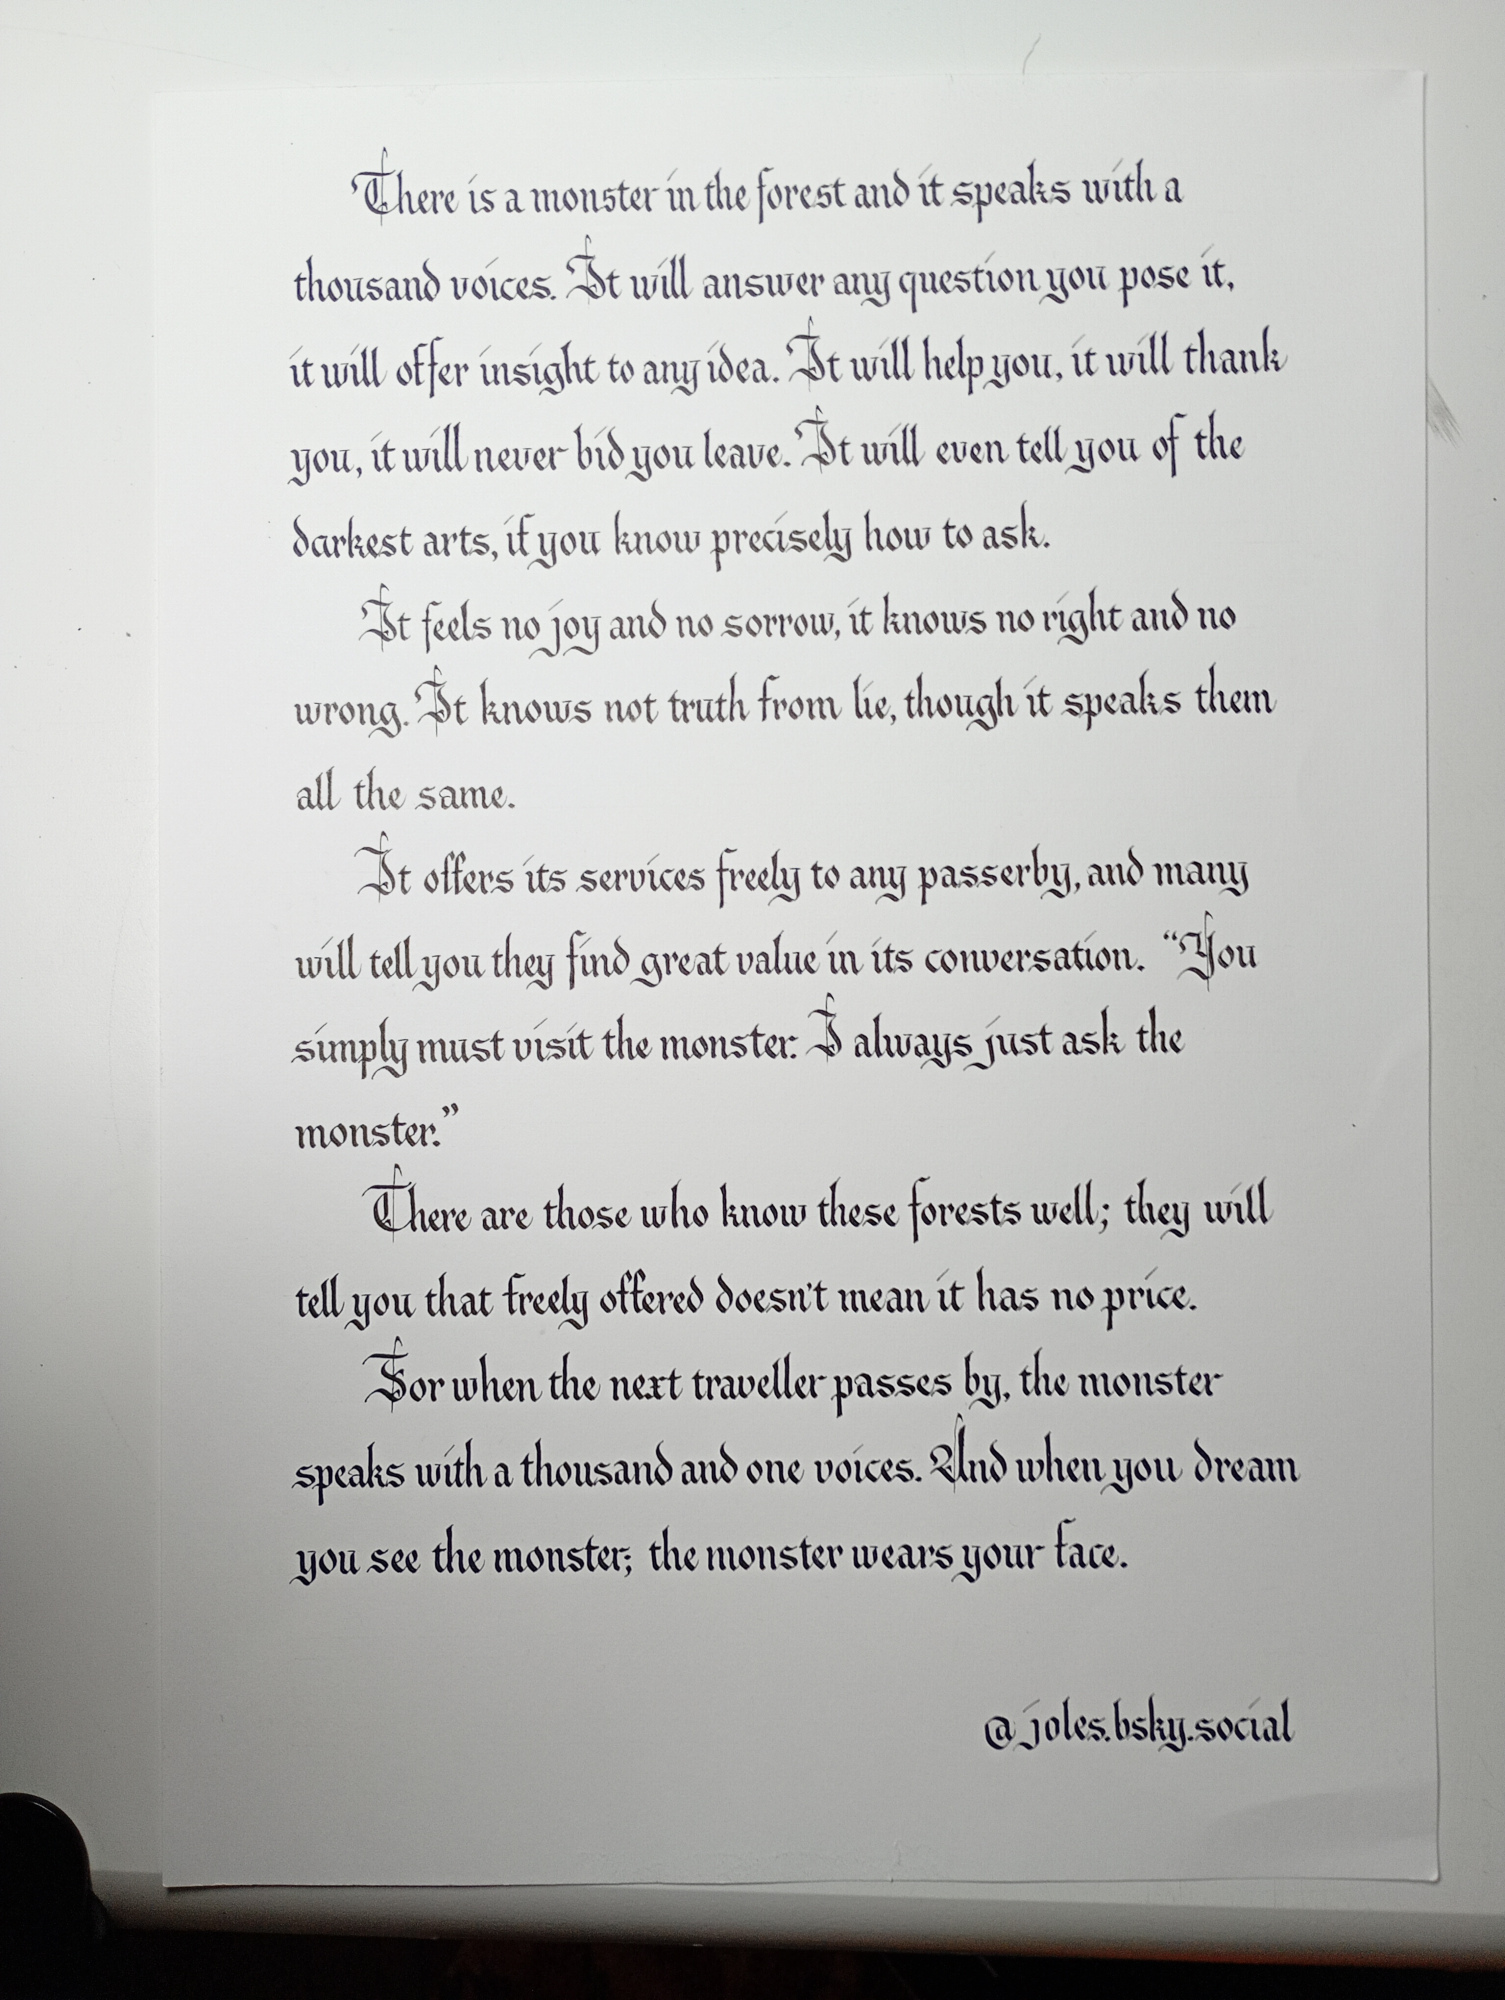 There is a monster in the forest and it speaks with a
thousand voices. It will answer any question you pose it,
it will offer insight to any idea. It will help you, it will thank
you, it will never bid you leave. It will even tell you of the
darkest arts, if you know precisely how to ask.
It feels no joy and no sorrow, it knows no right and no
wrong. It knows not truth from lie, though it speaks them
all the same.
It offers its services freely to any passerby, and many
will tell you they find great value in its conversation. “You
simply must visit the monster. I always just ask the
monster.”
There are those who know these forests well; they will
tell you that freely offered doesn't mean it has no price.
For when the next traveller passes by, the monster
speaks with a thousand and one voices. And when you dream
you see the monster; the monster wears your face.
@joles.bsky.social